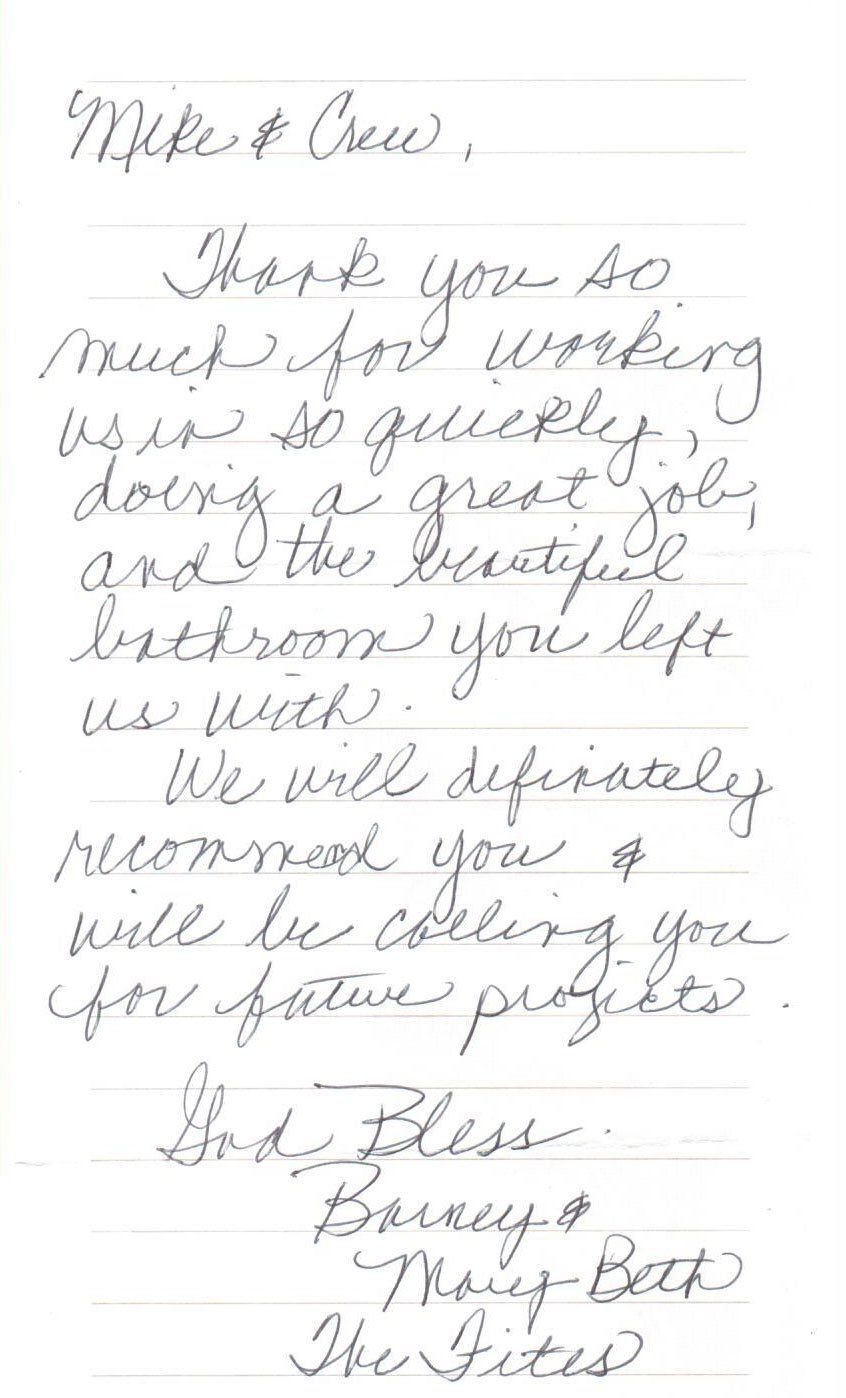 Mike & Crew,
Thank you so
much for working
us in so quickly,
doing a great job,
and the beautiful
bathroom you left
us with.
We will definately
recommend you &
will be calling you
for future projects.
God Bless.
Barney &
Mary Beth
The Fites